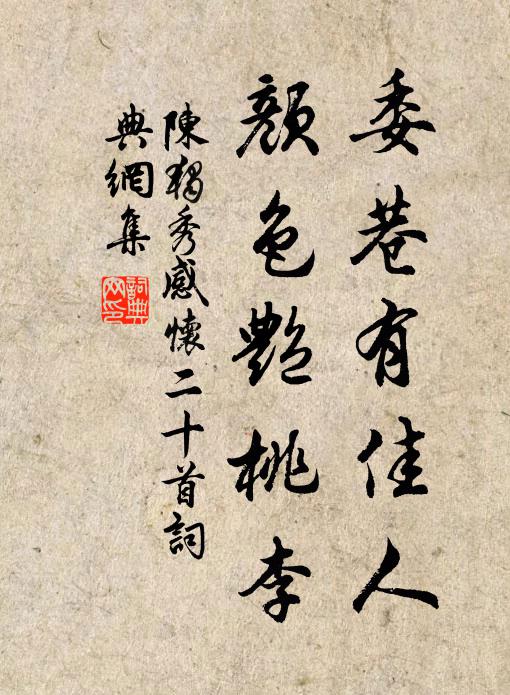 委巷有佳人
顏色艷桃李
陳獨秀感懷二十首詞
典網集
詞典
网印